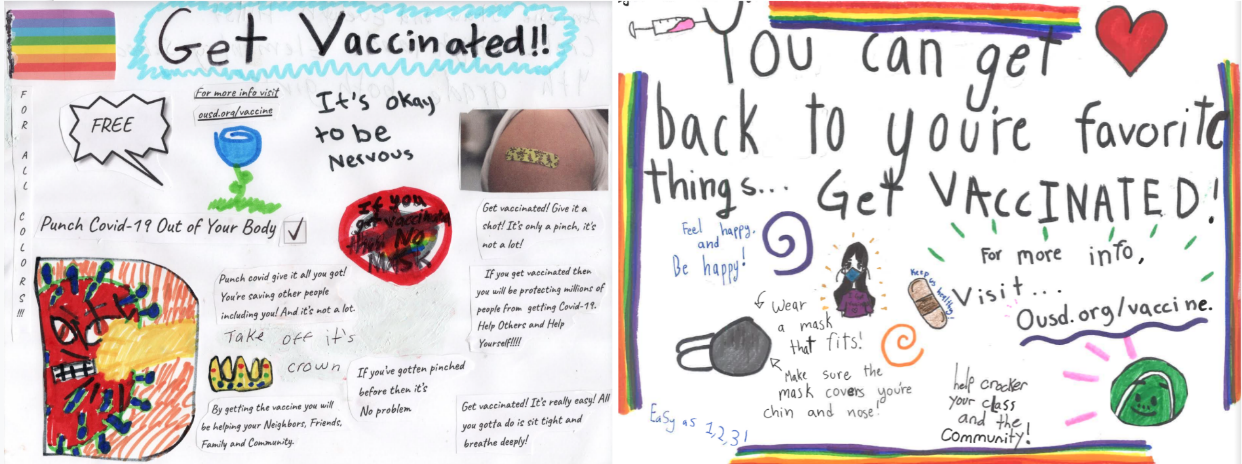 Get Vaccinated!!
FOR ALL COLORS!!!
FREE
For more info visit
ousd.org/vaccine
It's okay
to be
Nervous
Punch Covid-19 Out of Your Body
If you
get vaccinated
then No
Mask
Get vaccinated! Give it a
shot! It's only a pinch, it's
not a lot!
Punch covid give it all you got!
You're saving other people
including you! And it's not a lot.
Take off it's
crown
If you get vaccinated then
you will be protecting millions of
people from getting Covid-19.
Help Others and Help
Yourself!!!!
If you've gotten pinched
before then it's
No problem
By getting the vaccine you will
be helping your Neighbors, Friends,
Family and Community.
Get vaccinated! It's really easy! All
you gotta do is sit tight and
breathe deeply!
You can get
back to you're favorite
things... Get VAccINATED!
Feel happy,
and
Be happy!
Keep
us healthy!
For more info,
Visit...
Ousd.org/vaccine.
Wear
a mask
that fits!
Make sure the
mask covers you're
chin and nose!
Easy as 1,2,3!
help crocker
your class
and the
Community!